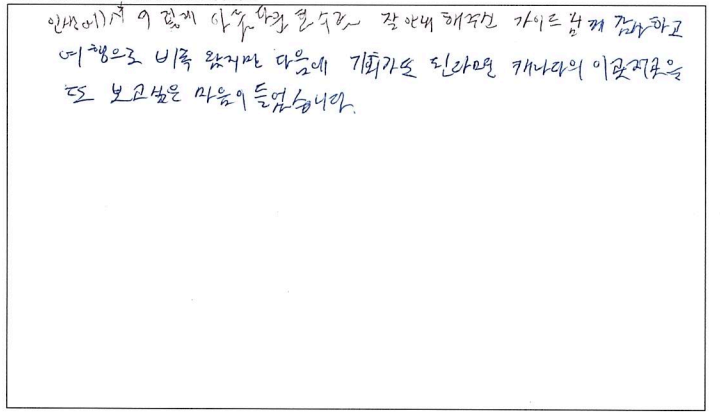 인생에서 이렇게 아름다움 볼 수록 잘 안내 해주신 가이드님께 감사하고
여행으로 비록 왔지만 다음에 기회가 또 된다면 캐나다의 이곳저곳을
또 보고싶은 마음이 들었습니다.